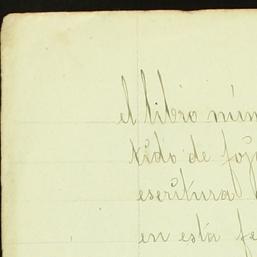 el libro núm
tido de foja
escritura
en esta fe